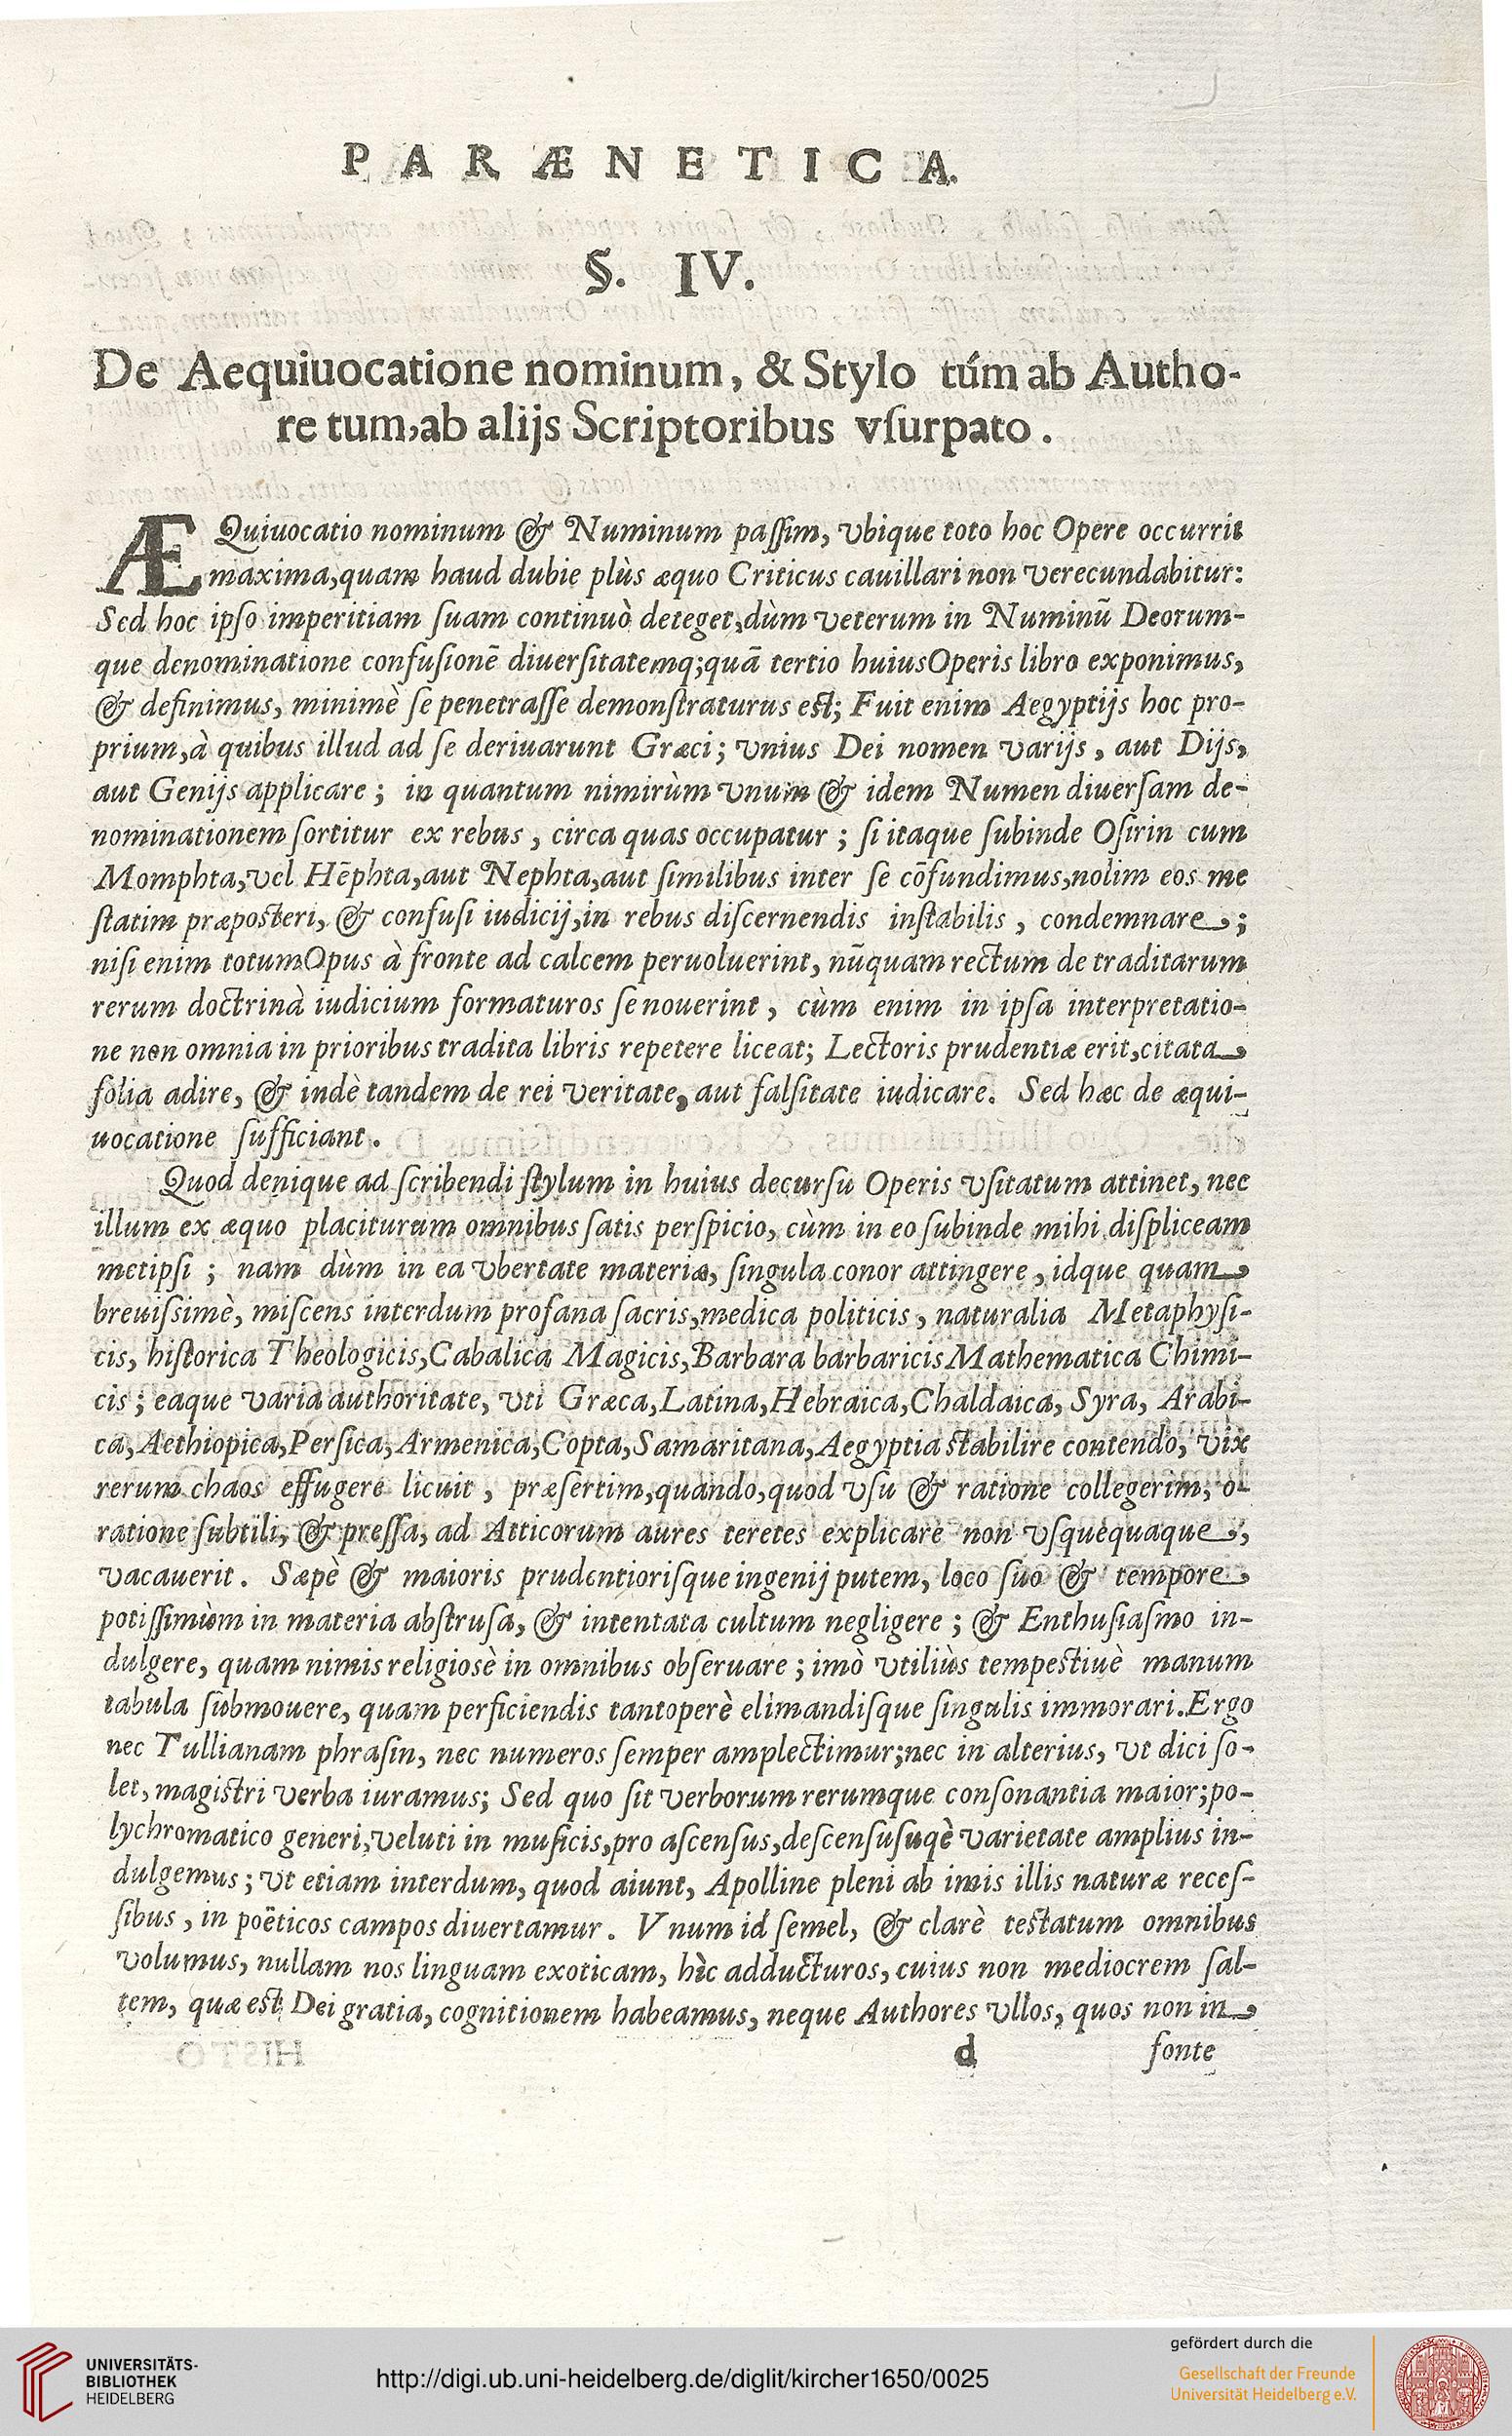 PARÆNETICA.
§. IV.
De Aequiuocatione nominum, & Stylo túm ab Autho-
re tum,ab alijs Scriptoribus vſurpato.
ÆQuiuocatio nominum & Numinum paſſim, vbique toto hoc Opere occurrit
maxima,quam haud dubie plùs æquo Criticus cauillari non verecundabitur:
Sed hoc ipſo imperitiam ſuam continuò deteget,dùm veterum in Numinū Deorum-
que denominatione confuſionē diuerſitatemq;quā tertio huiusOperis libro exponimus,
& definimus, minimè ſe penetraſſe demonſtraturus eſt; Fuit enim Aegyptijs hoc pro-
prium,à quibus illud ad ſe deriuarunt Græci; vnius Dei nomen varijs, aut Dijs,
aut Genijs applicare; in quantum nimirùm vnum & idem Numen diuerſam de-
nominationem ſortitur ex rebus, circa quas occupatur; ſi itaque ſubinde Oſirin cum
Momphta,vel Hēphta,aut Nephta,aut ſimilibus inter ſe cōfundimus,nolim eos me
ſtatim præpoſteri, & confuſi iudicij,in rebus diſcernendis inſtabilis, condemnare;
niſi enim totumOpus à fronte ad calcem peruoluerint, nūquam rectum de traditarum
rerum doctrinà iudicium formaturos ſe nouerint, cùm enim in ipſa interpretatio-
ne non omnia in prioribus tradita libris repetere liceat; Lectoris prudentiæ erit,citata
folia adire, & indè tandem de rei veritate, aut falſitate iudicare. Sed hæc de æqui-
uocatione ſufficiant.
Quod denique ad ſcribendi ſtylum in huius decurſu Operis vſitatum attinet, nec
illum ex æquo placiturum omnibus ſatis perſpicio, cùm in eo ſubinde mihi diſpliceam
metipſi; nam dùm in ea vbertate materiæ, ſingula conor attingere, idque quam
breuiſsimè, miſcens interdum profana ſacris,medica politicis, naturalia Metaphyſi-
cis, hiſtorica Theologicis,Cabalica Magicis,Barbara barbaricis Mathematica Chimi-
cis; eaque varia authoritate, vti Græca,Latina,Hebraica,Chaldaica, Syra, Arabi-
ca,Aethiopica,Perſica,Armenica,Copta,Samaritana,Aegyptia ſtabilire contendo, vix
rerum chaos effugere licuit, præſertim,quando,quod vſu & ratione collegerim, o-
ratione ſubtili, & preſſa, ad Atticorum aures teretes explicare non vſquequaque,
vacauerit. Sæpè & maioris prudentioriſque ingenij putem, loco ſuo & tempore
potiſſimùm in materia abſtruſa, & intentata cultum negligere; & Enthuſiaſmo in-
dulgere, quam nimis religiosè in omnibus obſeruare; imò vtiliùs tempeſtiuè manum
tabula ſubmouere, quam perficiendis tantoperè elimandiſque ſingulis immorari.Ergo
nec Tullianam phraſin, nec numeros ſemper amplectimur;nec in alterius, vt dici ſo-
let, magiſtri verba iuramus; Sed quo ſit verborum rerumque conſonantia maior;po-
lychromatico generi,veluti in muſicis,pro aſcenſus,deſcenſuſuqè varietate amplius in-
dulgemus; vt etiam interdum, quod aiunt, Apolline pleni ab imis illis naturæ receſ-
ſibus, in poëticos campos diuertamur. Vnum id ſemel, & clarè teſtatum omnibus
volumus, nullam nos linguam exoticam, hìc adducturos, cuius non mediocrem ſal-
tem, quæ eſt Dei gratia, cognitionem habeamus, neque Authores vllos, quos non in
d fonte
UNIVERSITÄTS-
BIBLIOTHEK
HEIDELBERG
http://digi.ub.uni-heidelberg.de/diglit/kircher1650/0025
gefördert durch die
Gesellschaft der Freunde
Universität Heidelberg e.V.